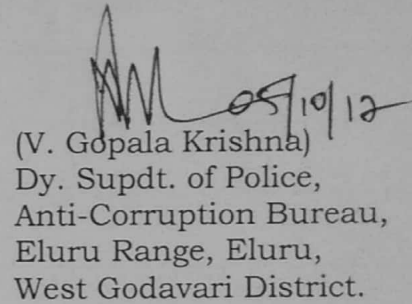 05/10/12
(V. Gopala Krishna)
Dy. Supdt. of Police,
Anti-Corruption Bureau,
Eluru Range, Eluru,
West Godavari District.